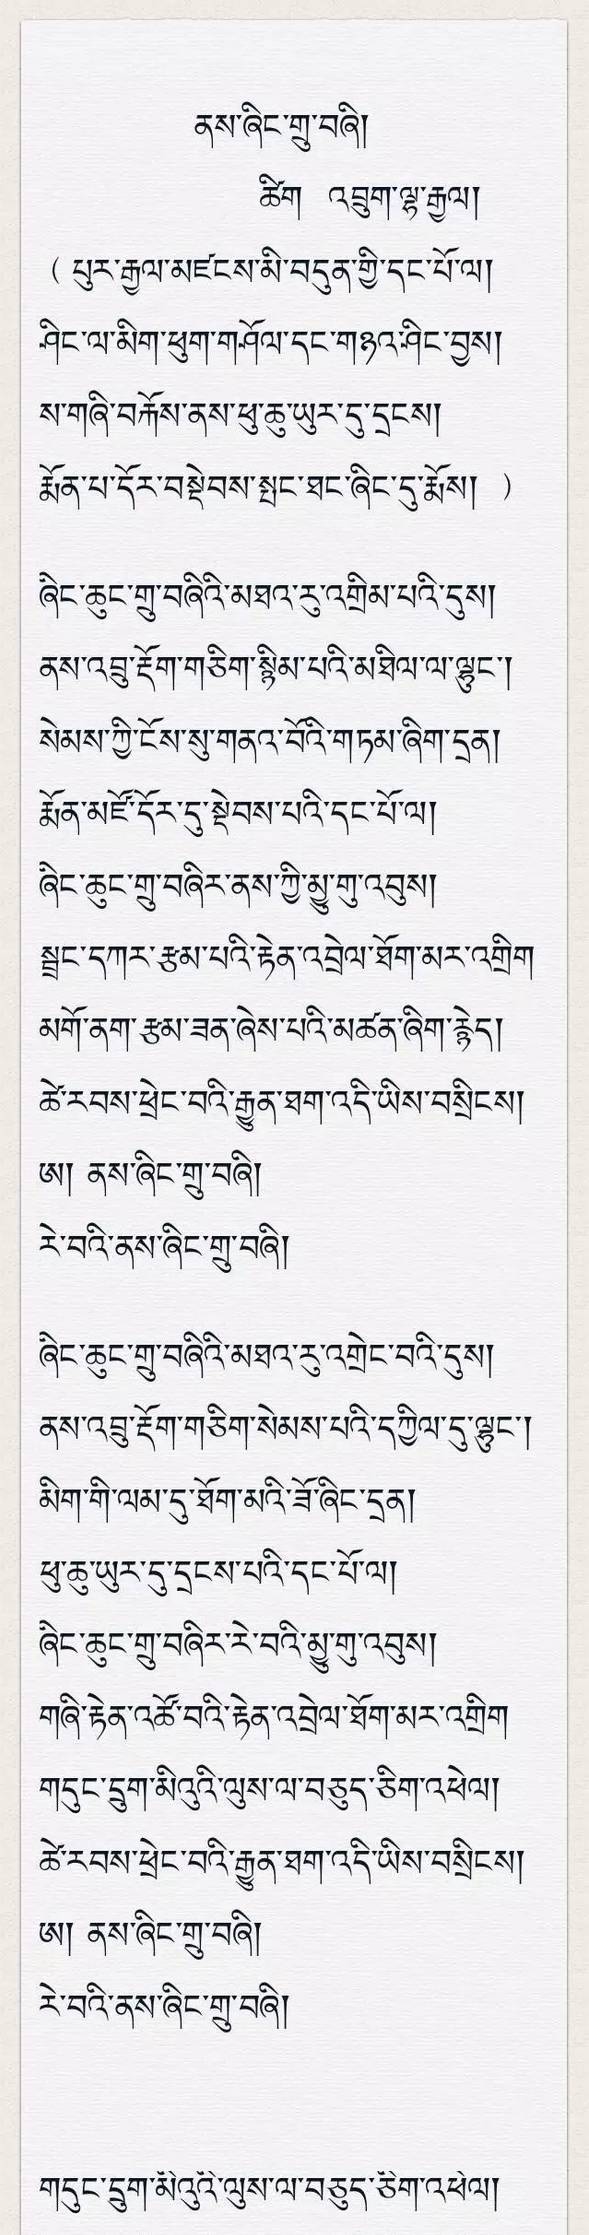 ནས་ཞིང་གྲུ་བཞི།
ཚིག འབྲུག་ལྷ་རྒྱལ།
( པུར་རྒྱལ་མཛངས་མི་བདུན་གྱི་དང་པོ་ལ།
ཤིང་ལ་མིག་ཕུག་གཤོལ་དང་གཉའ་ཤིང་བྱས།
ས་གཞི་བརྐོས་ནས་ཕུ་ཆུ་ཡུར་དུ་དྲངས།
རྨོན་པ་དོར་བསྡེབས་སྤང་ཐང་ཞིང་དུ་རྨོས། )
ཞིང་ཆུང་གྲུ་བཞིའི་མཐའ་རུ་འགྲིམ་པའི་དུས།
ནས་འབྲུ་རྡོག་གཅིག་སྙིམ་པའི་མཐིལ་ལ་ལྷུང་།
སེམས་ཀྱི་ངོས་སུ་གནའ་བོའི་གཏམ་ཞིག་དྲན།
རྨོན་མཛོ་དོར་དུ་སྡེབས་པའི་དང་པོ་ལ།
ཞིང་ཆུང་གྲུ་བཞིར་ནས་ཀྱི་མྱུ་གུ་འབུས།
སྦྲང་དཀར་རྩམ་པའི་རྟེན་འབྲེལ་ཐོག་མར་འགྲིག
མགོ་ནག་རྩམ་ཟན་ཞེས་པའི་མཚན་ཞིག་རྙེད།
ཚེ་རབས་ཕྲེང་བའི་རྒྱུན་ཐག་འདི་ཡིས་བསྲིངས།
ཨ། ནས་ཞིང་གྲུ་བཞི།
རེ་བའི་ནས་ཞིང་གྲུ་བཞི།
ཞིང་ཆུང་གྲུ་བཞིའི་མཐའ་རུ་འགྲེང་བའི་དུས།
ནས་འབྲུ་རྡོག་གཅིག་སེམས་པའི་དཀྱིལ་དུ་ལྷུང་།
མིག་གི་ལམ་དུ་ཐོག་མའི་ཟོ་ཞིང་དྲན།
ཕུ་ཆུ་ཡུར་དུ་དྲངས་པའི་དང་པོ་ལ།
ཞིང་ཆུང་གྲུ་བཞིར་རེ་བའི་མྱུ་གུ་འབུས།
གཞི་རྟེན་འཚོ་བའི་རྟེན་འབྲེལ་ཐོག་མར་འགྲིག
གདུང་དྲུག་མིའུའི་ལུས་ལ་བཅུད་ཅིག་འཕེལ།
ཚེ་རབས་ཕྲེང་བའི་རྒྱུན་ཐག་འདི་ཡིས་བསྲིངས།
ཨ། ནས་ཞིང་གྲུ་བཞི།
རེ་བའི་ནས་ཞིང་གྲུ་བཞི།
གདུང་དྲུག་མིའུའི་ལུས་ལ་བཅུད་ཅིག་འཕེལ།